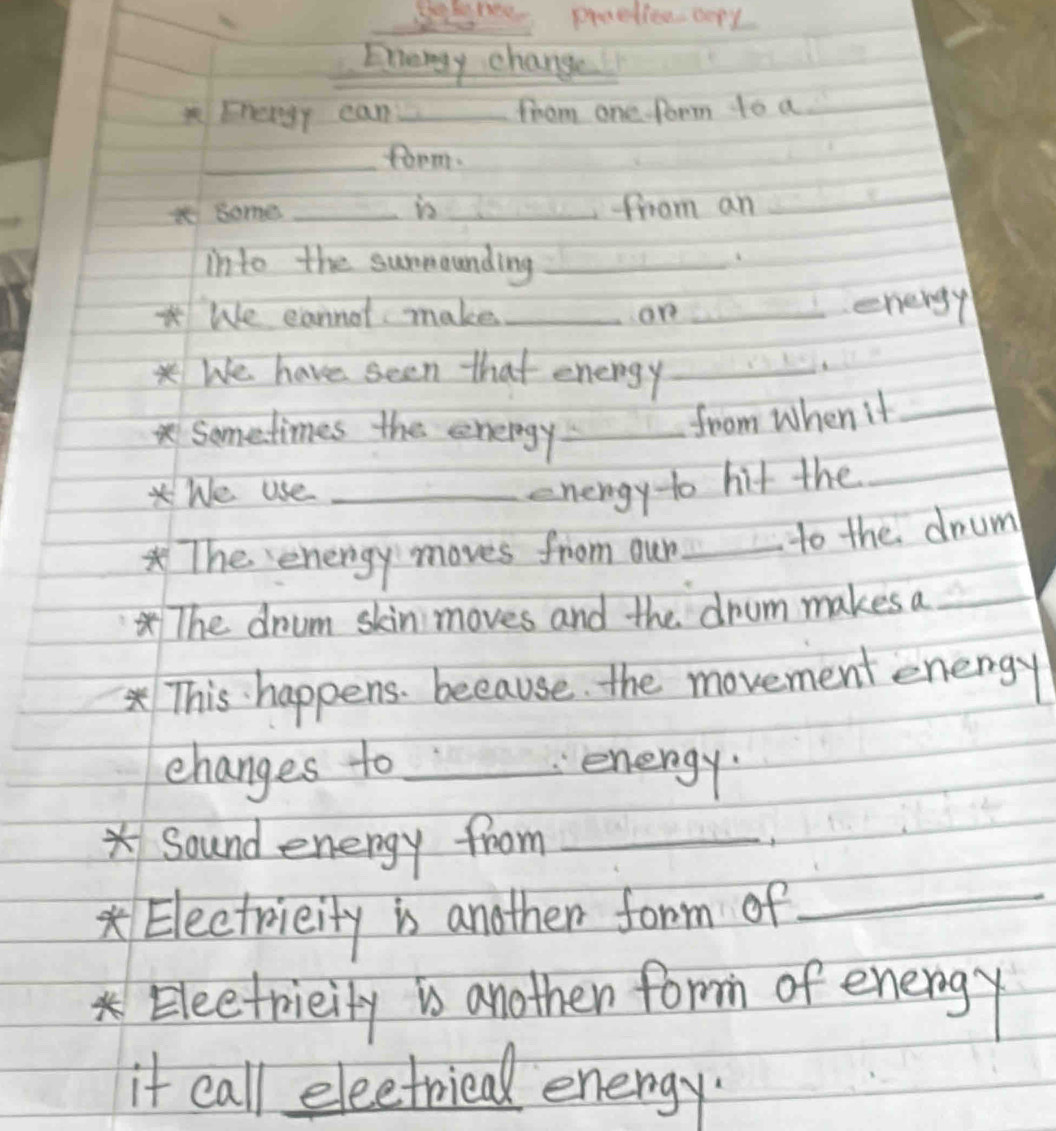 Science practice copy
Energy change
* Energy can ______ from one form to a
______ form.
* Some ______ is ______ from an ______
into the surrounding ______.
* We cannot make ______ or ______ energy
* We have seen that energy ______.
* Sometimes the energy ______ from When it ______
* We use ______ energy to hit the ______
* The energy moves from our ______ to the drum
* The drum skin moves and the drum makes a ______
* This happens. because the movement energy
changes to ______ energy.
* Sound energy from ______.
* Electricity is another form of ______
* Electricity is another form of energy
it call electrical energy.